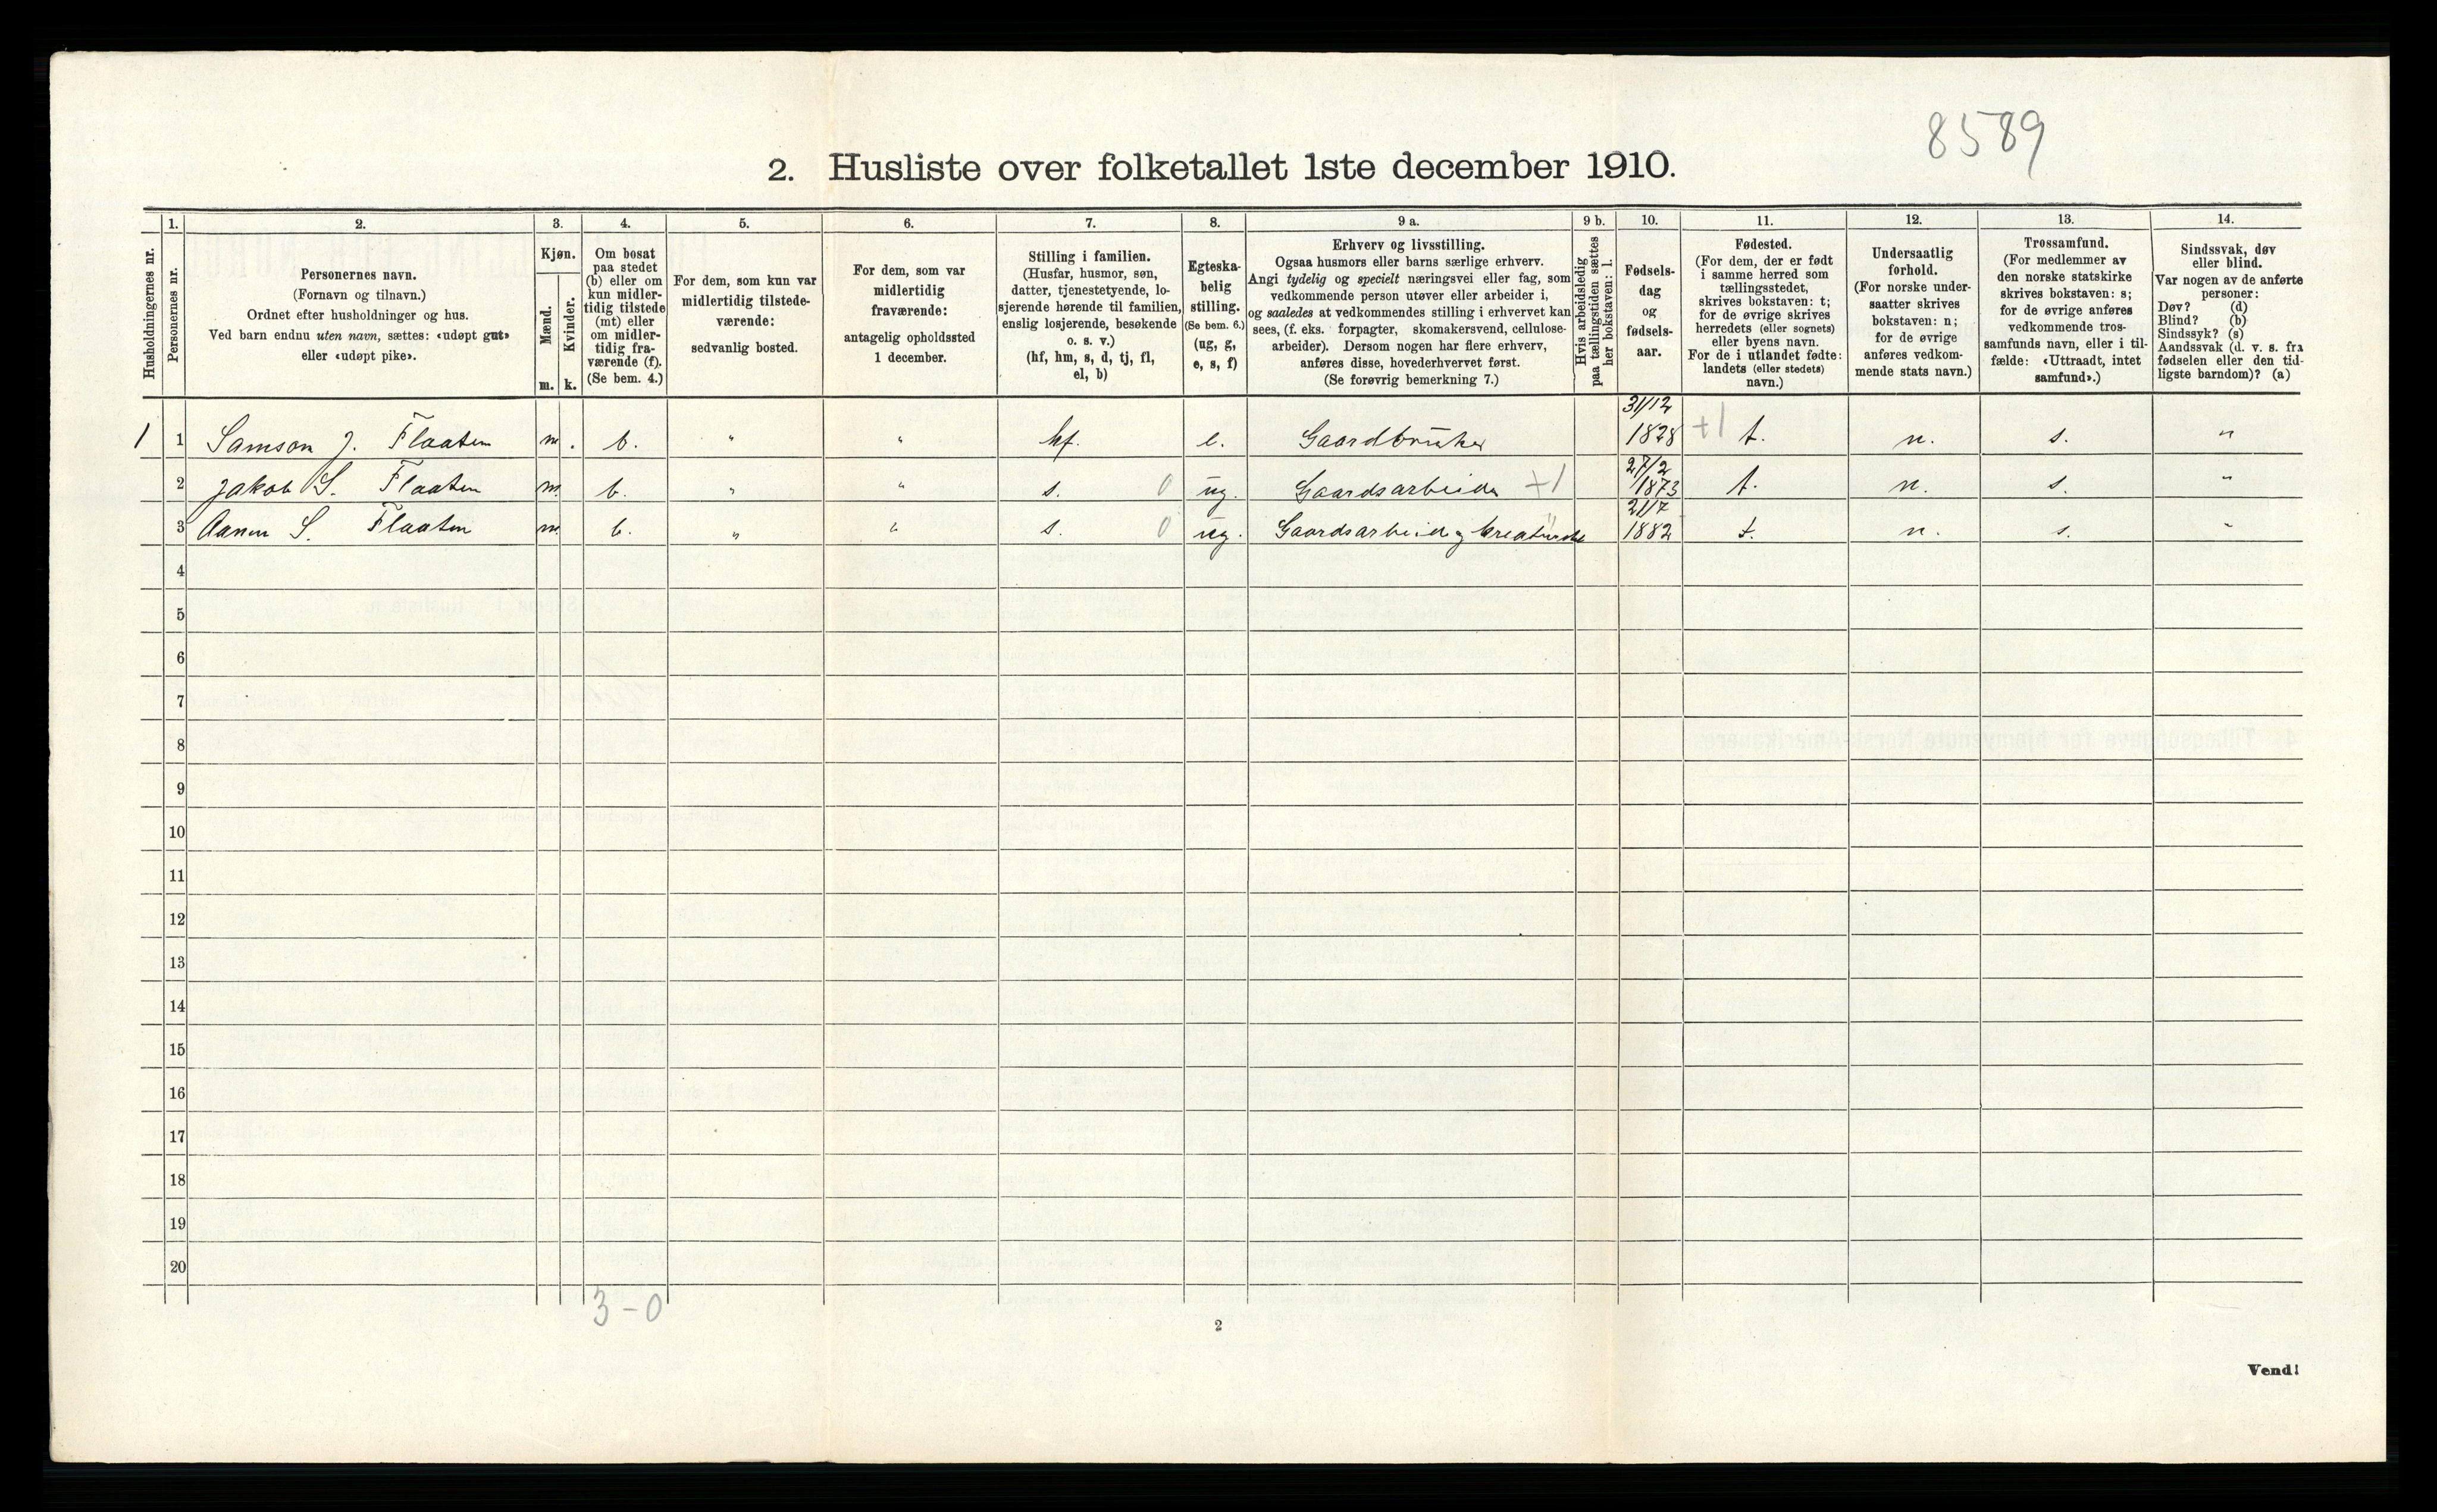 8589
2. Husliste over folketallet 1ste december 1910.
Husholdningernes nr.
1.
Personernes nr.
2.
Personernes navn.
(Fornavn og tilnavn.)
Ordnet efter husholdninger og hus.
Ved barn endnu uten navn, sættes: «udøpt gut»
eller «udøpt pike».
3.
Kjøn.
Mænd.
Kvinder.
m. k.
4.
Om bosat
paa stedet
(b) eller om
kun midler-
tidig tilstede
(mt) eller
om midler-
tidig fra-
værende (f).
(Se bem. 4.)
5.
For dem, som kun var
midlertidig tilstede-
værende:
sedvanlig bosted.
6.
For dem, som var
midlertidig
fraværende:
antagelig opholdssted
1 december.
7.
Stilling i familien.
(Husfar, husmor, søn,
datter, tjenestetyende, lo-
sjerende hørende til familien,
enslig losjerende, besøkende
o. s. v.)
(hf, hm, s, d, tj, fl,
el, b)
8.
Egteska-
belig
stilling.
(Se bem. 6.)
(ug, g,
e, s, f)
9 a.
Erhverv og livsstilling.
Ogsaa husmors eller barns særlige erhverv.
Angi tydelig og specielt næringsvei eller fag, som
vedkommende person utøver eller arbeider i,
og saaledes at vedkommendes stilling i erhvervet kan
sees, (f. eks. forpagter, skomakersvend, cellulose-
arbeider). Dersom nogen har flere erhverv,
anføres disse, hovederhvervet først.
(Se forøvrig bemerkning 7.)
9 b.
Hvis arbeidsledig
paa tællingstiden sættes
her bokstaven: l.
10.
Fødsels-
dag
og
fødsels-
aar.
11.
Fødested.
(For dem, der er født
i samme herred som
tællingsstedet,
skrives bokstaven: t;
for de øvrige skrives
herredets (eller sognets)
eller byens navn.
For de i utlandet fødte:
landets (eller stedets)
navn.)
12.
Undersaatlig
forhold.
(For norske under-
saatter skrives
bokstaven: n;
for de øvrige
anføres vedkom-
mende stats navn.)
13.
Trossamfund.
(For medlemmer av
den norske statskirke
skrives bokstaven: s;
for de øvrige anføres
vedkommende tros-
samfunds navn, eller i til-
fælde: «Uttraadt, intet
samfund».)
14.
Sindssvak, døv
eller blind.
Var nogen av de anførte
personer:
Døv? (d)
Blind? (b)
Sindssyk? (s)
Aandssvak (d. v. s. fra
fødselen eller den tid-
ligste barndom)? (a)
1 1 Samson J. Flaaten m. b. " " hf. e. Gaardbruker 31/12 1828 +1 t. n. s. "
2 Jakob S. Flaaten m. b. " " s. 0 ug. Gaardsarbeide +1 27/2 1873 t. n. s. "
3 Aanen S. Flaaten m. b. " " s. 0 ug. Gaardsarbeid og kreaturstel 21/7 1882 t. n. s. "
4
5
6
7
8
9
10
11
12
13
14
15
16
17
18
19
20
3-0
2
Vend!